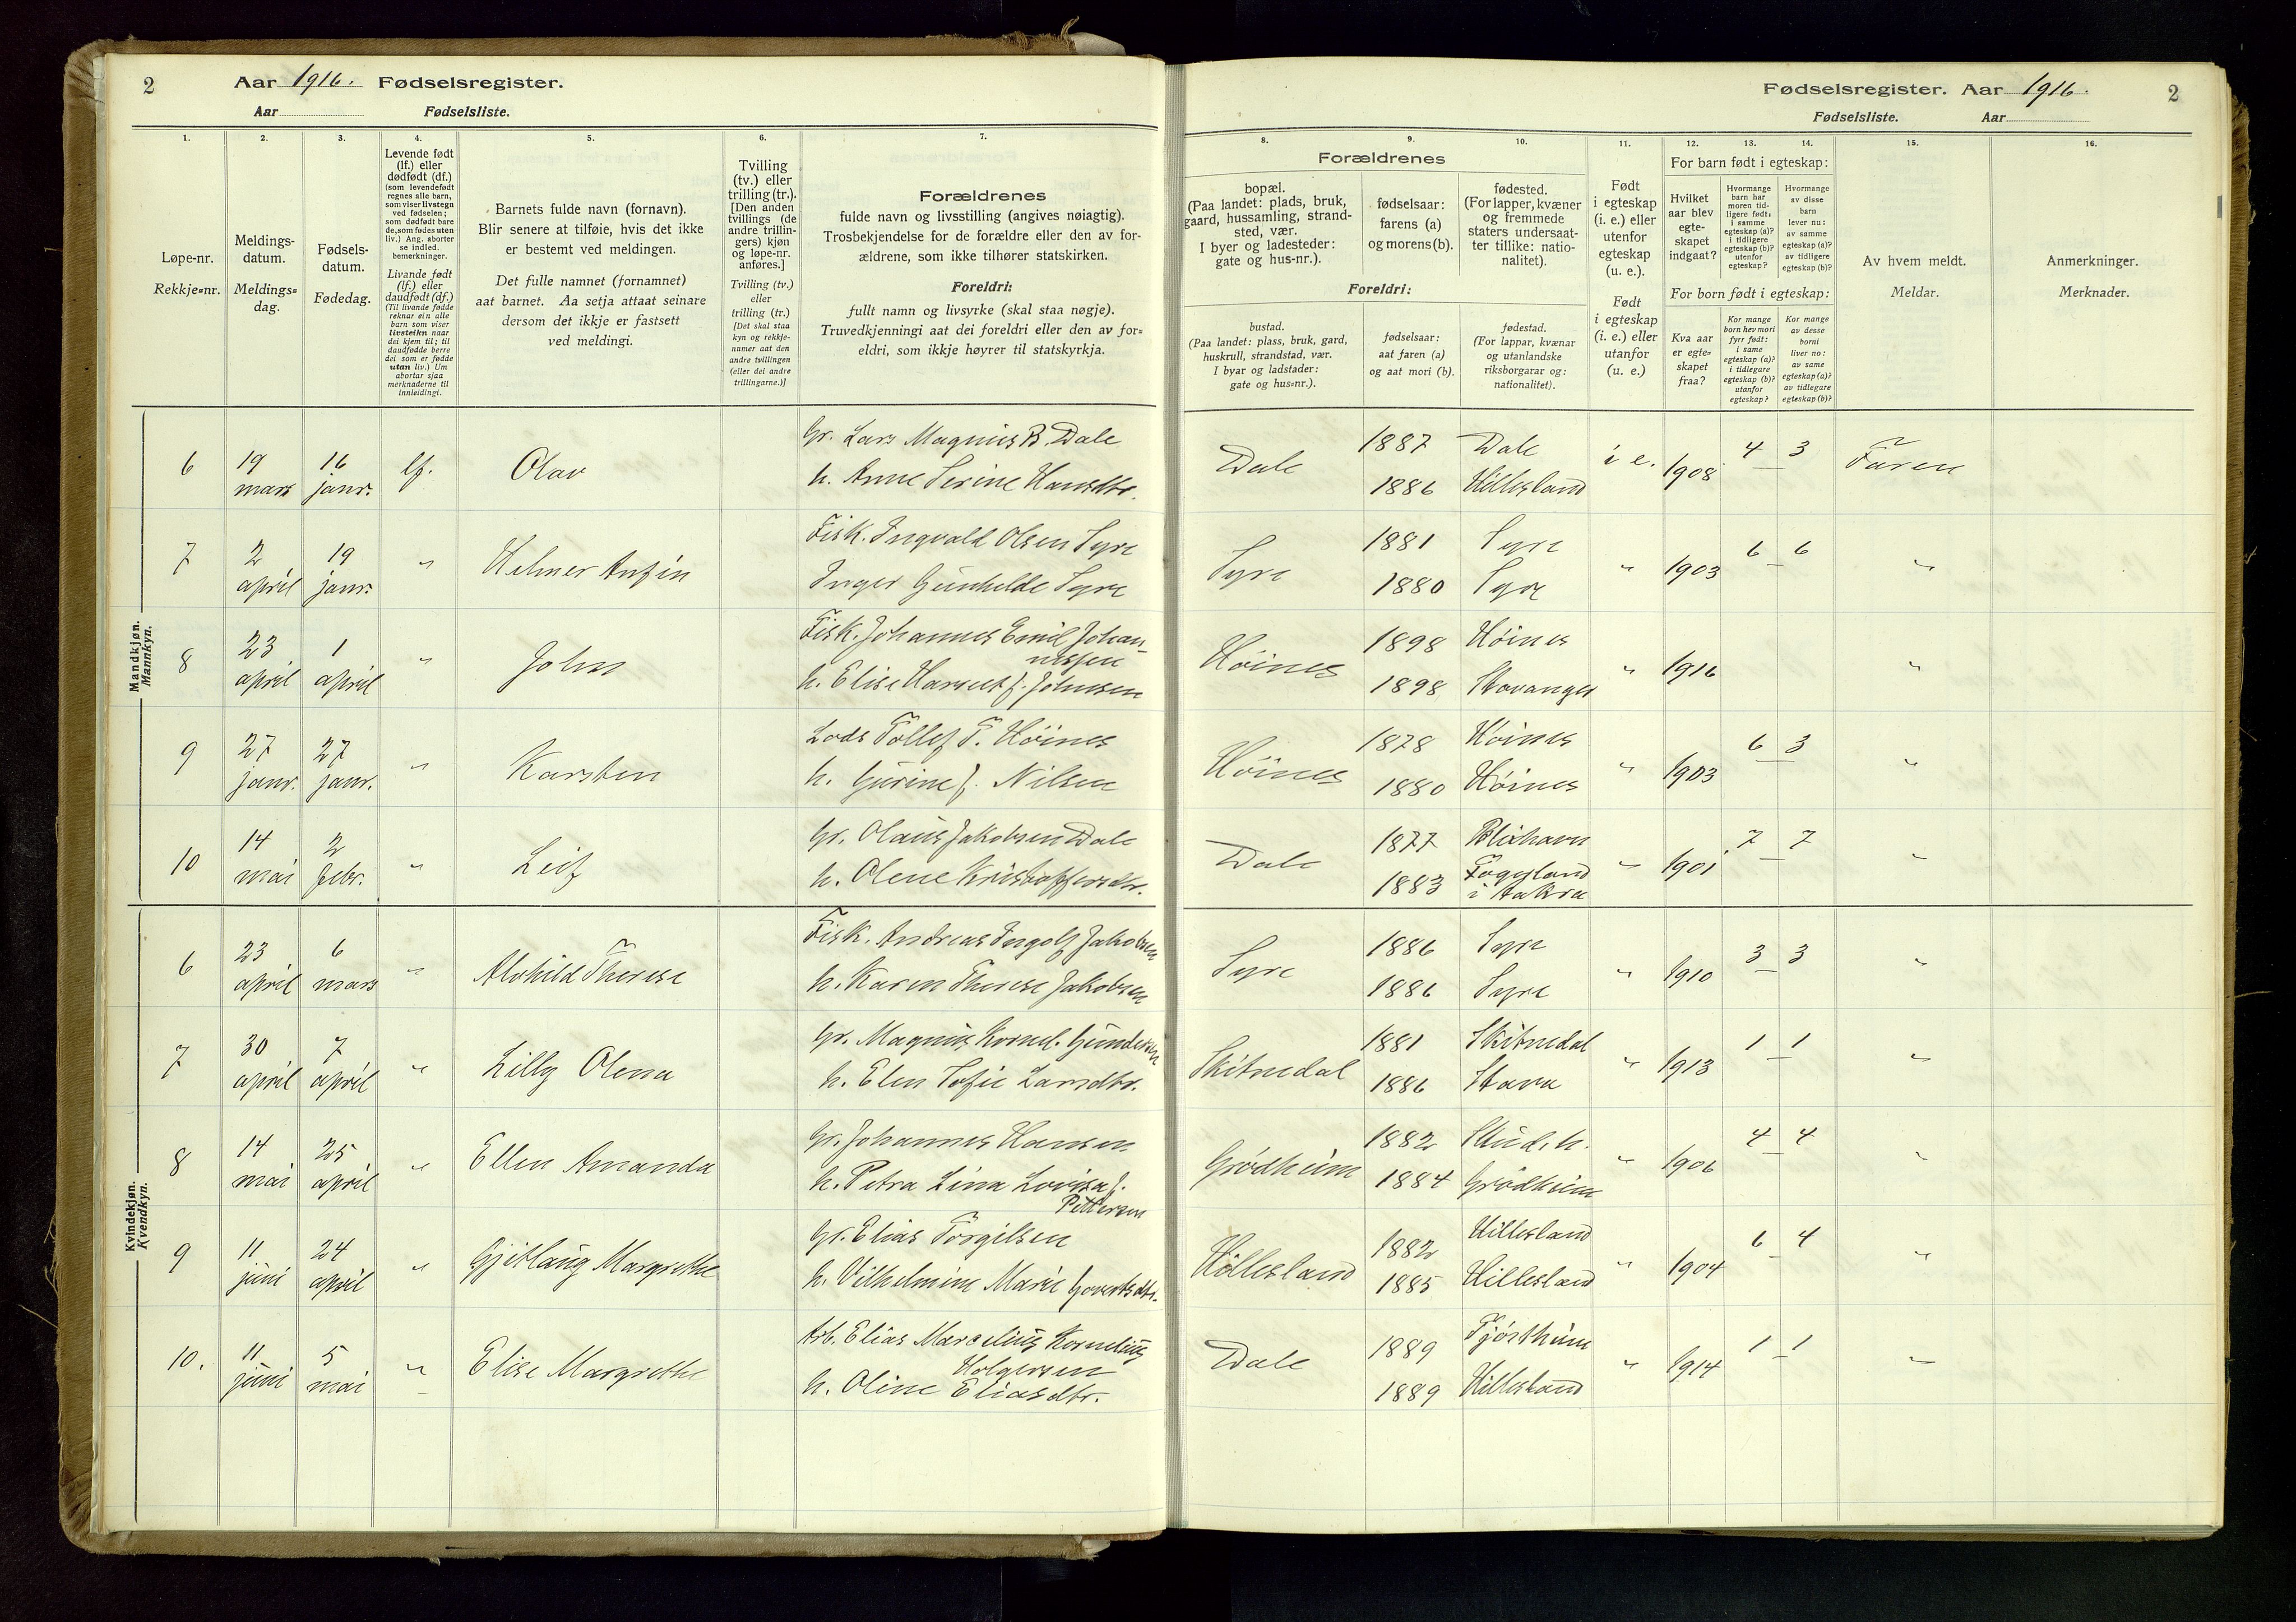 2 Aar 1916. Fødselsregister.
Aar Fødselsliste.
1. 2. 3. 4. 5. 6. 7.
Løpe-nr.
Rekkje=nr.
Meldings-
datum.
Meldings=
dag.
Fødsels-
datum.
Fødedag.
Levende født
(lf.) eller
dødfødt (df.)
(som levendefødt
regnes alle barn,
som viser livstegn
ved fødselen;
som dødfødt bare
de, som fødes uten
liv.) Ang. aborter
se indled.
bemerkninger.
Livande født
(lf.) eller
daudfødt (df.)
(Til livande fødde
reknar ein alle
barn som viser
livsteikn naar
dei kjem til; til
daudfødde berre
dei som er fødde
utan liv.) Um
abortar sjaa
merknaderne til
innleidingi.
Barnets fulde navn (fornavn).
Blir senere at tilføie, hvis det ikke
er bestemt ved meldingen.
Det fulle namnet (fornamnet)
aat barnet. Aa setja attaat seinare
dersom det ikkje er fastsett
ved meldingi.
Tvilling
(tv.) eller
trilling (tr.).
[Den anden
tvillings (de
andre trillin-
gers) kjøn
og løpe-nr.
anføres.]
Tvilling (tv.)
eller
trilling (tr.)
[Det skal staa
kyn og rekkje-
numer aat den
andre tvillingen
(eller dei andre
trillingarne.)]
Forældrenes
fulde navn og livsstilling (angives nøiagtig).
Trosbekjendelse for de forældre eller den av for-
ældrene, som ikke tilhører statskirken.
Foreldri:
fullt namn og livsyrke (skal staa nøgje).
Truvedkjenningi aat dei foreldri eller den av for=
eldri, som ikkje høyrer til statskyrkja.
Mandkjøn.
Mannkyn.
6 19 mars 16 janr. lf. Olav Gr. Lars Magnus B. Dale
h. Anne Serine Hansdtr.
7 2 april 19 janr. " Helmer Anfin Fisk. Ingvald Olsen Syre
Inger Gunhilde Syre
8 23 april 1 april " John Fisk. Johannes Emil Johan-
nessen
h. Elise Harriet f. Johnsen
9 27 janr. 27 janr. " Karsten Lods Tollef T. Høines
h. Gurine f. Nilsen
10 14 mai 2 febr. " Leif Gr. Olaus Jakobsen Dale
h. Olene Kristoffersdtr.
Kvindekjøn.
Kvendkyn.
6 23 april 6 mars " Alvhild Therese Fisk. Andreas Ingolf Jakobsen
h. Karen Therese Jakobsen
7 30 april 7 april " Lilly Olena Gr. Magnus Kornel. Gundersen
h. Elen Sofie Larsdtr.
8 14 mai 25 april " Ellen Amanda Gr. Johannes Hansen
h. Petra Lina Lovisa f.
Pettersen
9 11 juni 24 april " Gjitlaug Margrethe Gr. Elias Torgilsen
h. Vilhelmine Marie Govertsdtr.
10. 11 juni 5 mai " Elise Margrethe Arb. Elias Marcelius Kornelius
Holgersen
h. Oline Eliasdtr.
Fødselsregister. Aar 1916. 2
Fødselsliste. Aar
8. 9. 10. 11. 12. 13. 14. 15. 16.
Forældrenes
bopæl.
(Paa landet: plads, bruk,
gaard, hussamling, strand-
sted, vær.
I byer og ladesteder:
gate og hus-nr.).
fødselsaar:
farens (a)
og morens (b).
fødested.
(For lapper, kvæner
og fremmede
staters undersaat-
ter tillike: natio-
nalitet).
Foreldri:
bustad.
(Paa landet: plass, bruk, gard,
huskrull, strandstad, vær.
I byar og ladstader:
gate og hus=nr.).
fødselsaar:
aat faren (a)
og aat mori (b).
fødestad.
(For lappar, kvænar
og utanlandske
riksborgarar og:
nationalitet).
Født
i egteskap
(i. e.) eller
utenfor
egteskap
(u. e.).
Født
i egteskap
(i. e.) eller
utanfor
(u. e.)
For barn født i egteskap:
Hvilket
aar blev
egte-
skapet
indgaat?
Hvormange
barn har
moren tid-
ligere født:
i samme
egteskap (a)?
i tidligere
egteskap (b)?
utenfor
egteskap?
Hvormange
av disse
barn
lever nu:
av samme
egteskap (a)?
av tidligere
egteskap (b)?
For born født i egteskap:
Kva aar
er egte=
skapet
fraa?
Kor mange
born hev mori
fyrr født:
i same
egteskap (a)?
i tidlegare
egteskap (b)?
utanfor
egteskap?
Kor mange
av desse
borni
liver no:
av same
egteskap (a)?
av tidlegare
egteskap (b)?
Av hvem meldt.
Meldar.
Anmerkninger.
Merknader.
Dale 1887 Dale i e. 1908 4 – 3 Faren
1886 Hillesland
Syre 1881 Syre " 1903 6 – 6 "
1880 Syre
Høines 1898 Høines " 1916 "
1898 Stavanger
Høines 1878 Høines " 1903 6 – 3 "
1880 Høines
Dale 1877 Blixhavn " 1901 7 – 7 "
1883
i Aakra
Syre 1886 Syre " 1910 3 – 3 "
1886 Syre
Skitnedal 1881 Skitnedal " 1913 1 – 1 "
1886 Stava
Grødheim 1882 Skud.h. " 1906 4 – 4 "
1884 Grødheim
Hillesland 1882 Hillesland " 1904 6 – 4 "
1885 Hillesland
Dale 1889 " 1914 1 – 1 "
1889 Hillesland